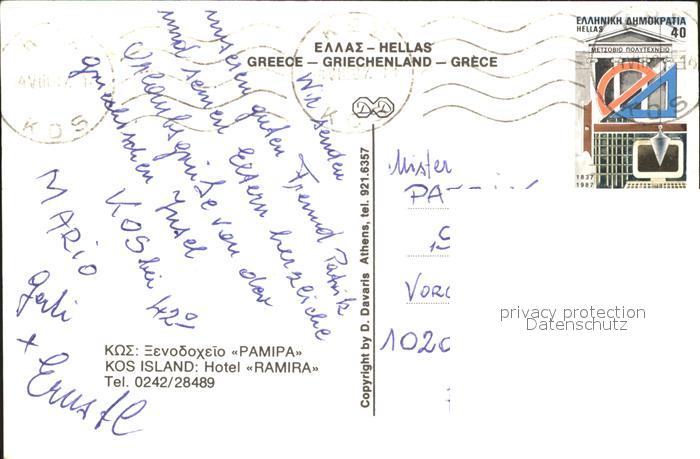 ΕΛΛΑΣ – HELLAS
GREECE – GRIECHENLAND – GRÈCE
Wir senden
unseren guten Freund Patrik
und seinen Eltern herzliche
Urlaubsgrüße von der
griechischen Insel
KOS bei 42°
MARIO
Gerti
+
ΚΩΣ: Ξενοδοχεῖο «ΡΑΜΙΡΑ»
KOS ISLAND: Hotel «RAMIRA»
Tel. 0242/28489
Copyright by D. Davaris Athens, tel. 921.6357
ΕΛΛΗΝΙΚΗ ΔΗΜΟΚΡΑΤΙΑ
HELLAS 40
ΜΕΤΣΟΒΙΟ ΠΟΛΥΤΕΧΝΕΙΟ
1837
1987
KOS
KOS
Mister
PA
VOR
102
privacy protection
Datenschutz